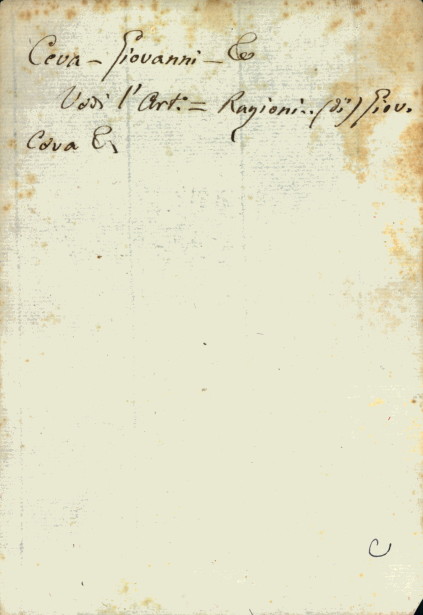 Ceva - Giovanni - &
Vedi l'Art. = Ragioni.. (di) Giov.
Ceva &
C